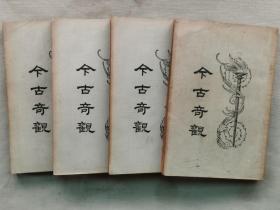 今古奇觀
今古奇觀
今古奇觀
今古奇觀